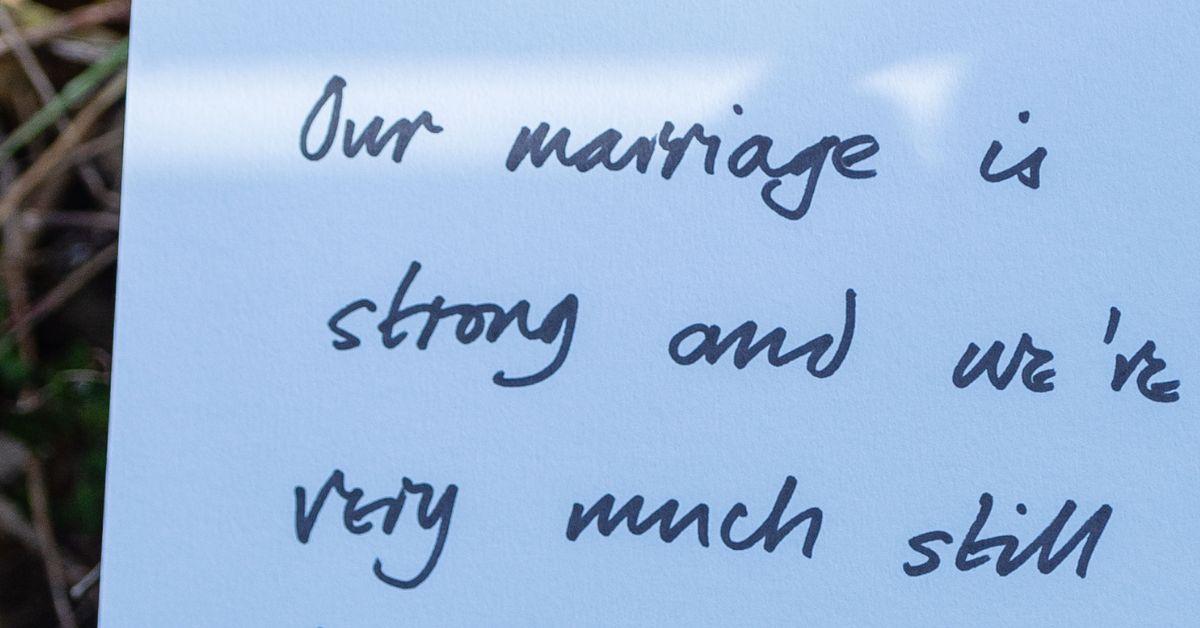 Our marriage is
strong and we've
very much still